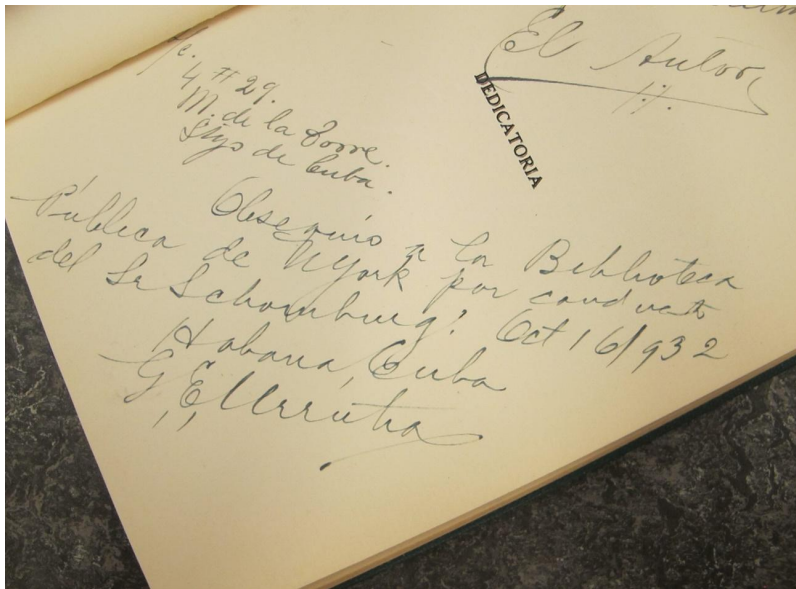 El Autor,
DEDICATORIA
4 # 29.
M. de la Torre.
Stgo de Cuba.
Obsequio a la Biblioteca
Pública de NYork por conducto
del Sr Schomburg. Oct 16/932
Habana, Cuba
G, E, Urrutia